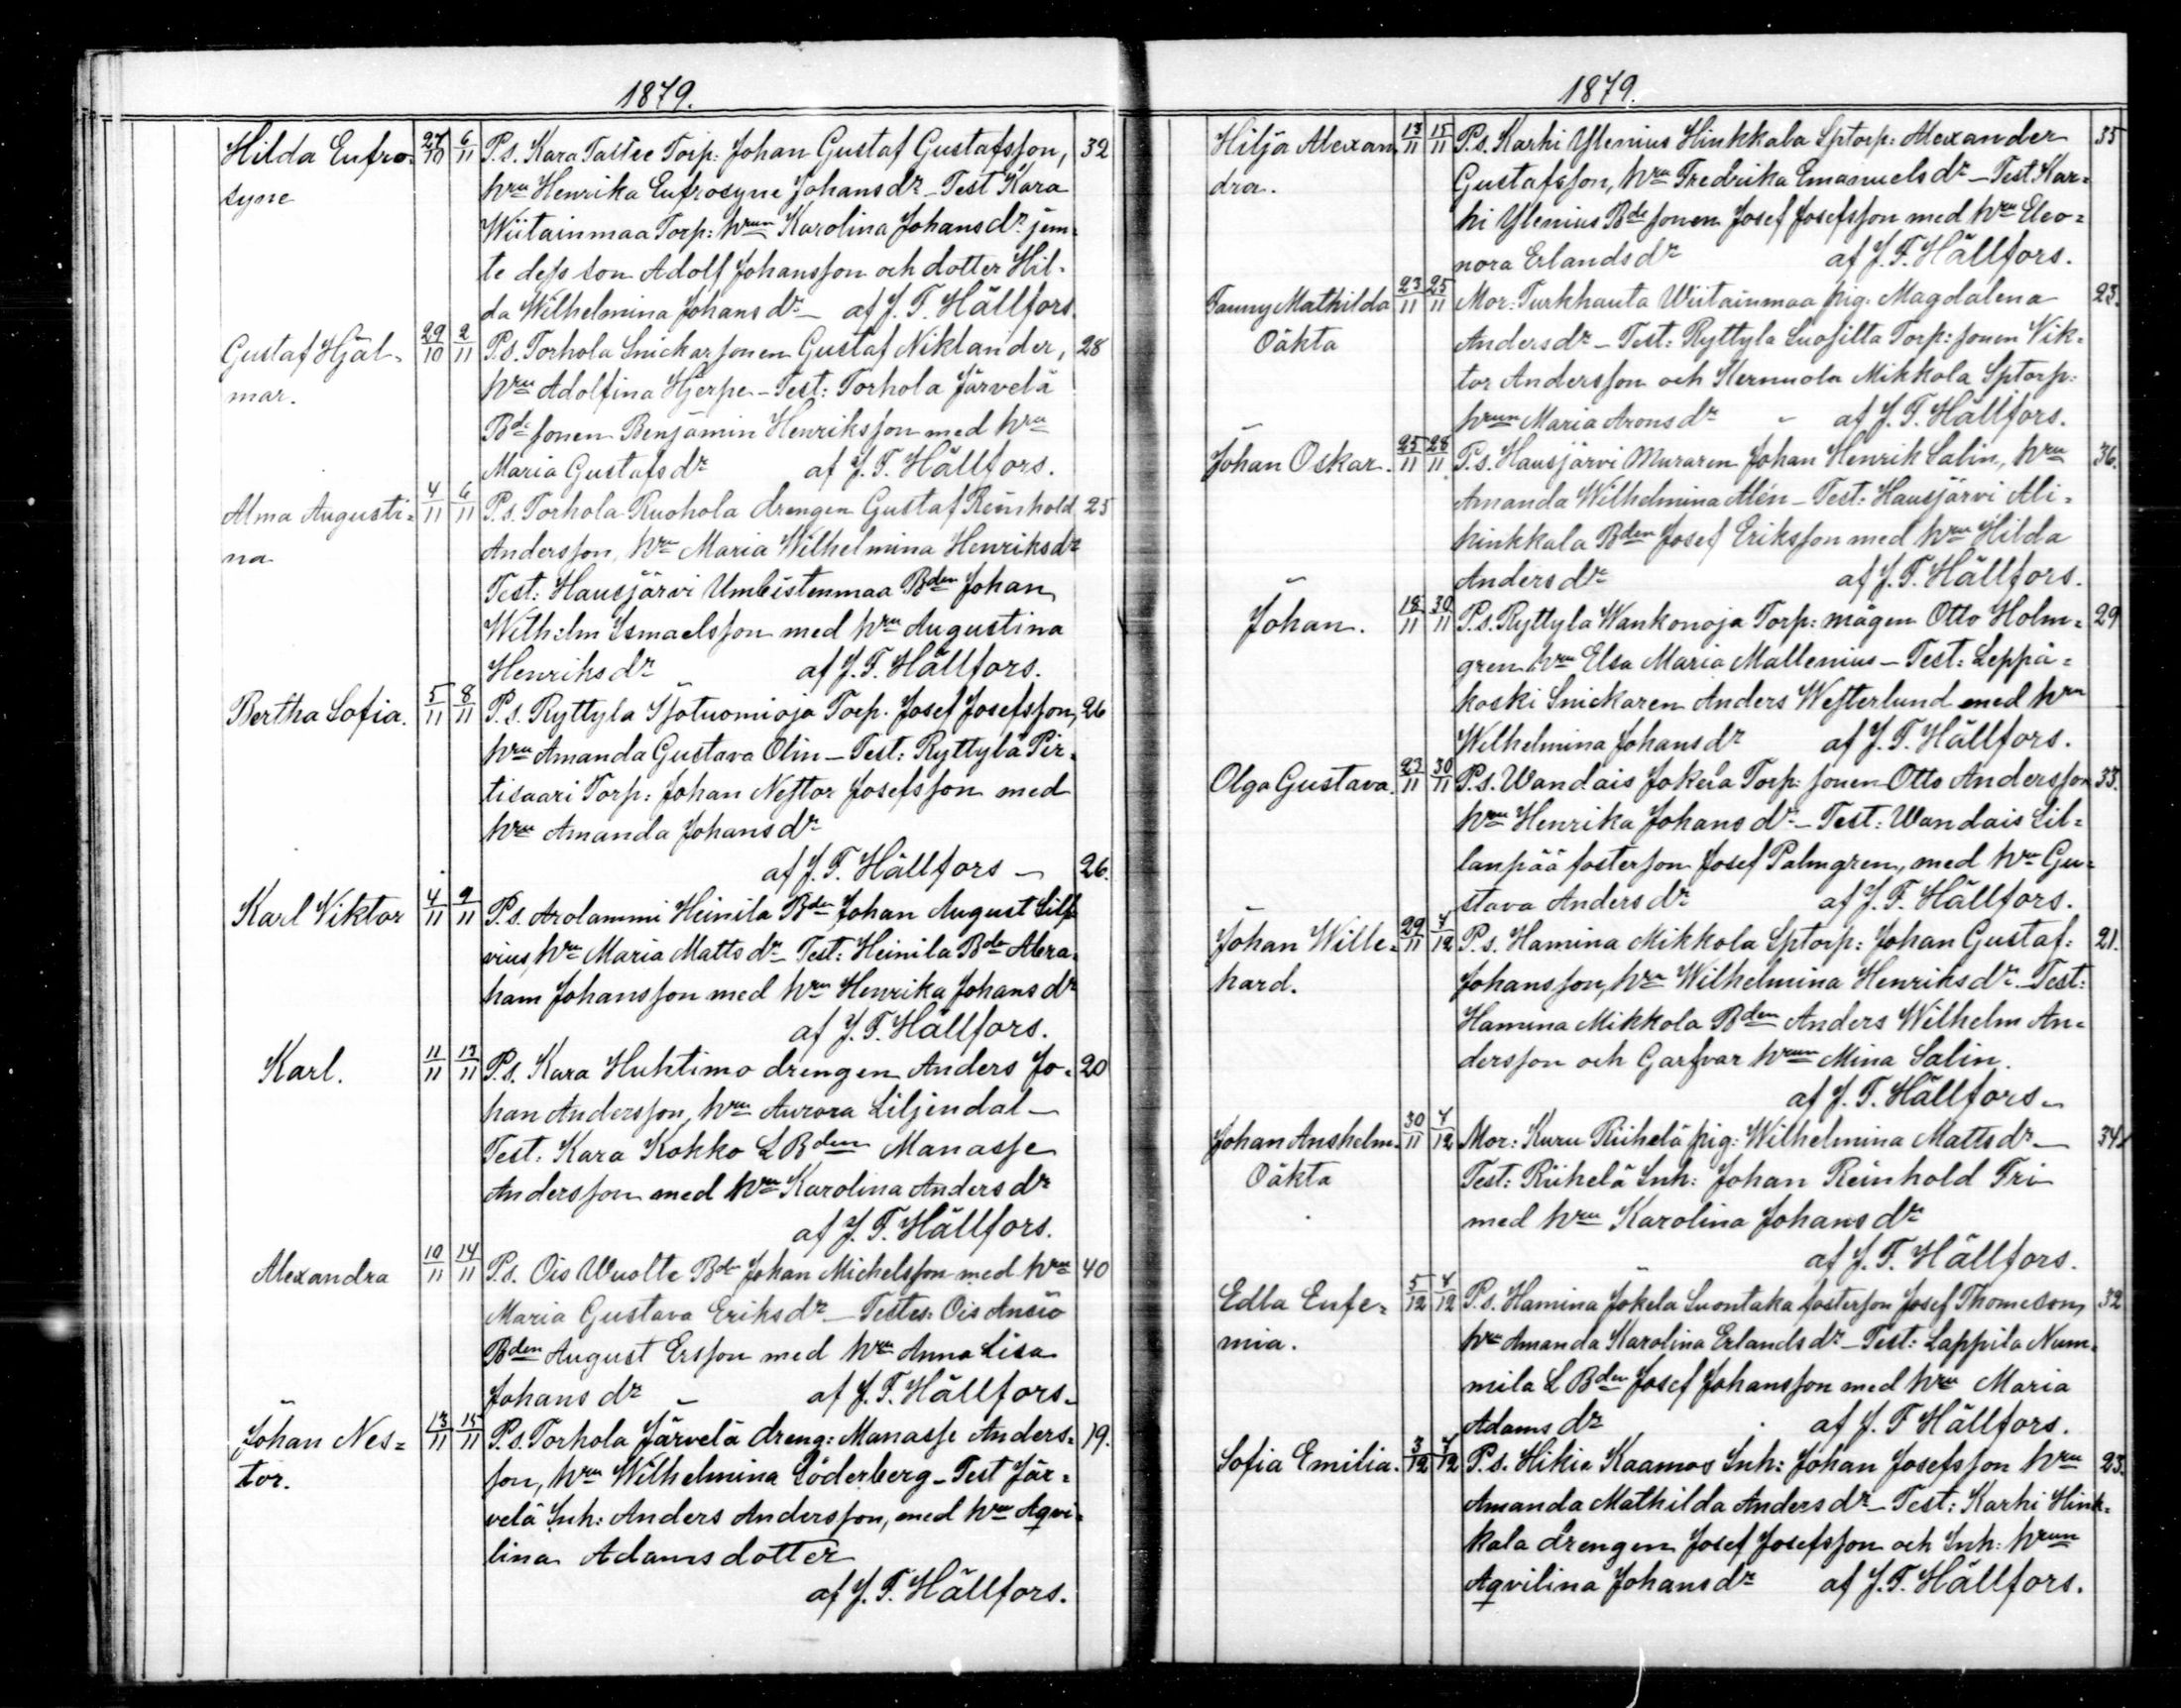 1879.
Hilda Eufro- 27/10 6/11 P.s. Kara Taltee Torp: Johan Gustaf Gustafsson, 32
syne hru Henrika Eufrosyne Johansdr - Test Kara
Wiitainmaa Torp: hrun Karolina Johansdr jem-
te dess son Adolf Johansson och dotter Hil-
da Wilhelmina Johansdr - af J. F. Hällfors.
Gustaf Hjal- 29/10 2/11 P.s. Torhola Snickarsonen Gustaf Niklander, 28
mar. hru Adolfina Hjerpe - Test: Torhola Järvelä
Bdesonen Benjamin Henriksson med hru
Maria Gustafsdr af J. F. Hällfors.
Alma Augusti= 4/11 6/11 P.s. Torhola Ruohola drengen Gustaf Reinhold 25
na Andersson, hru Maria Wilhelmina Henriksdr
Test: Hausjärvi Umbistenmaa Bden Johan
Wilhelm Ismaelsson med hru Augustina
Henriksdr af J. F. Hällfors.
Bertha Sofia. 5/11 8/11 P.s. Ryttylä Isotuomioja Torp. Josef Josefsson, 26
hru Amanda Gustava Olin - Test: Ryttylä Pir-
tisaari Torp: Johan Nestor Josefsson med
hru Amanda Johansdr
af J. F. Hällfors - 26.
Karl Viktor 4/11 9/11 P.s. Arolammi Heinila Bden Johan August Silf
vius, hru Maria Mattsdr - Test: Heinila Bde Abra-
ham Johansson med hru Henrika Johansdr
af J. F. Hällfors.
Karl. 11/11 13/11 P.s. Kara Huhtimo drengen Anders Jo- 20
han Andersson, hru Aurora Liljendal -
Test: Kara Kokko LBden Manasse
Andersson med hru Karolina Andersdr
af J. F. Hällfors.
Alexandra 10/11 14/11 P.s. Ois Wuolte Bde Johan Michelsson med hru 40
Maria Gustava Eriksdr - Testes: Ois Ansio
Bden August Ersson med hru Anna Lisa
Johansdr - af J. F. Hällfors.
Johan Nes= 13/11 15/11 P.s. Torhola Järvelä dreng: Manasse Anders= 19.
tor. son, hru Wilhelmina Söderberg - Test Jär=
velä Inh: Anders Andersson, med hru Aqvi-
lina Adamsdotter
af J. F. Hällfors.
1879.
Hilja Alexan 13/11 15/11 P.s. Karhi Ylenius Hinkkala Sptorp: Alexander 35
dra. Gustafsson, hru Fredrika Emanuelsdr - Test Kar=
hi Ylenius Bdesonen Josef Josefsson med hru Eleo=
nora Erlandsdr af J. F. Hällfors.
Fanny Mathilda 23/11 25/11 Mor: Turkhauta Wiitainmaa pig. Magdalena 23.
Oäkta Andersdr - Test: Ryttylä Luosilta Torp: sonen Vik=
tor Andersson och Kernuola Mikkola Sptorp:
hrun Maria Aronsdr - af J. F. Hällfors.
Johan Oskar. 25/11 28/11 P.s. Hausjärvi Muraren Johan Henrik Salin, hru 36.
Amanda Wilhelmina Alén - Test: Hausjärvi Ali=
hinkkala Bden Josef Eriksson med hru Hilda
Andersdr af J. F. Hällfors.
Johan. 18/11 30/11 P.s. Ryttylä Wankonoja Torp: mågen Otto Holm= 29
gren hru Elsa Maria Mallenius - Test: Leppä=
koski Snickaren Anders Westerlund med hru
Wilhelmina Johansdr af J. F. Hällfors.
Olga Gustava. 23/11 30/11 P.s. Wandais Jokela Torp: sonen Otto Andersson 33.
hru Henrika Johansdr - Test: Wandais Sil=
lanpää fosterson Josef Palmgren, med hru Gu=
stava Andersdr af J. F. Hällfors.
Johan Wille= 29/11 7/12 P.s. Hamina Mikkola Sptorp: Johan Gustaf: 21.
hard. Johansson, hru Wilhelmina Henriksdr. Test:
Hamina Mikkola Bden Anders Wilhelm An=
dersson och Garfvar hrun Mina Salin.
af J. F. Hällfors.
Johan Anshelm. 30/11 7/12 Mor: Kuru Riihelä pig: Wilhelmina Mattsdr - 34
Oäkta Test: Riihelä Inh: Johan Reinhold Fri
med hru Karolina Johansdr
af J. F. Hällfors.
Edla Eufe= 5/12 7/12 P.s. Hamina Jokela Luontaka fosterson Josef Thomeson, 32
mia. hru Amanda Karolina Erlandsdr - Test: Lappila Num-
mila LBden Josef Johansson med hru Maria
Adamsdr af J. F. Hällfors.
Sofia Emilia. 3/12 7/12 P.s. Hikia Kaamos Inh: Johan Josefsson hru 23.
Amanda Mathilda Andersdr - Test: Karhi Hink=
kala drengen Josef Josefsson och Inh: hrun
Aqvilina Johansdr af J. F. Hällfors.